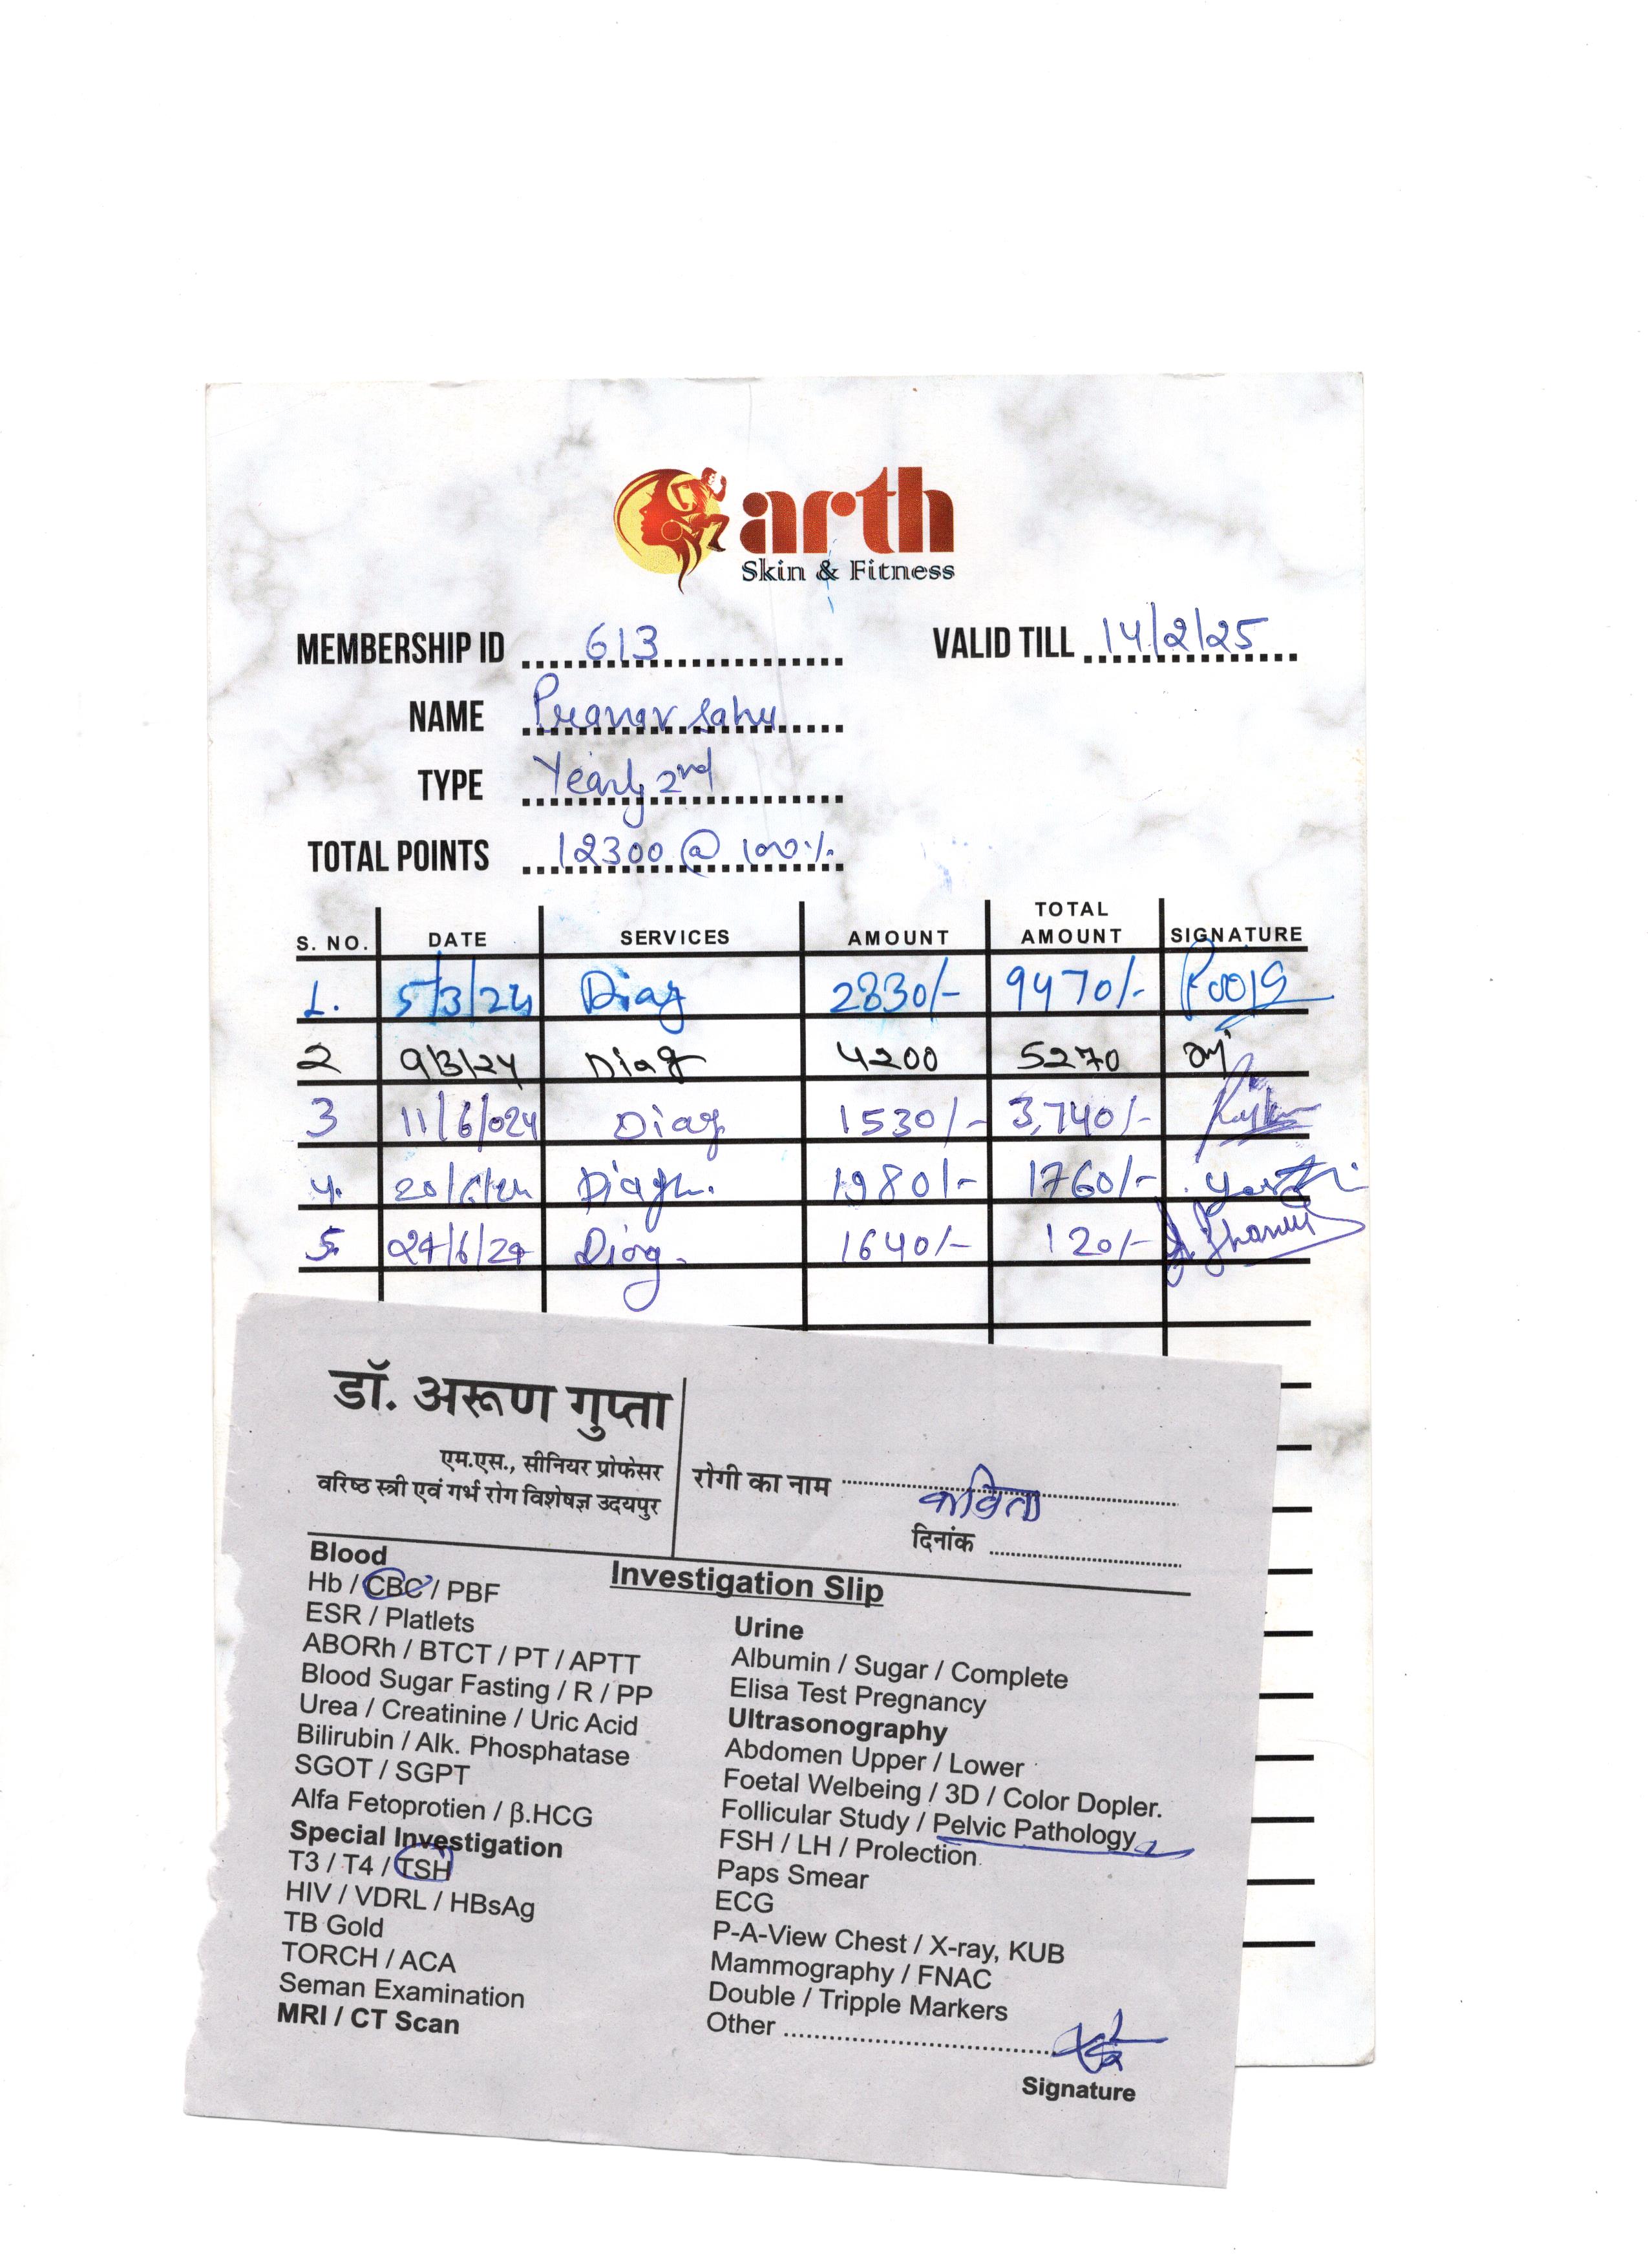 arth
Skin & Fitness
MEMBERSHIP ID 613 VALID TILL 14/2/25
NAME Pranav Sahu
TYPE Yearly 2nd
TOTAL POINTS 12300 @ 100%
S. NO. DATE SERVICES AMOUNT TOTAL AMOUNT SIGNATURE
1. 5/3/24 Diag 2830/- 9470/- Pooja
2 9/3/24 Diag 4200 5270
3 11/6/024 Diag 1530/- 3,740/-
4. 20/6/24 Diagn. 1980/- 1760/-
5. 24/6/24 Diag. 1640/- 120/-
डॉ. अरूण गुप्ता
एम.एस., सीनियर प्रोफेसर
वरिष्ठ स्त्री एवं गर्भ रोग विशेषज्ञ उदयपुर
रोगी का नाम कविता
दिनांक
Investigation Slip
Blood
Hb / CBC / PBF
ESR / Platlets
ABORh / BTCT / PT / APTT
Blood Sugar Fasting / R / PP
Urea / Creatinine / Uric Acid
Bilirubin / Alk. Phosphatase
SGOT / SGPT
Alfa Fetoprotien / β.HCG
Special Investigation
T3 / T4 / TSH
HIV / VDRL / HBsAg
TB Gold
TORCH / ACA
Seman Examination
MRI / CT Scan
Urine
Albumin / Sugar / Complete
Elisa Test Pregnancy
Ultrasonography
Abdomen Upper / Lower
Foetal Welbeing / 3D / Color Dopler.
Follicular Study / Pelvic Pathology
FSH / LH / Prolection
Paps Smear
ECG
P-A-View Chest / X-ray, KUB
Mammography / FNAC
Double / Tripple Markers
Other
Signature